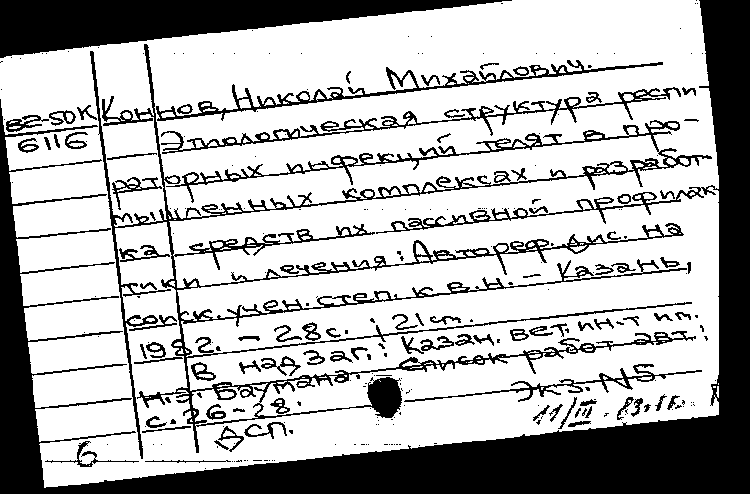 Коннов, Николай Михайлович.
ве-50К
6116
Этиологическая структура респи-
раторных инфекций телят в про-
мышленных комплексах и разработ-
ка средств их пассивной профилак-
тики и лечения: Автореф. дис. на
соиск. учен. степ. к.в.н. - Казань,
1982. - 28с. ; 21см.
В надзаг.: Казан. вет. ин-т им.
Н.Э. Баумана. Список работ авт.:
с. 26-28. Экз. N5.
ДСП. 11/III - 83.
6